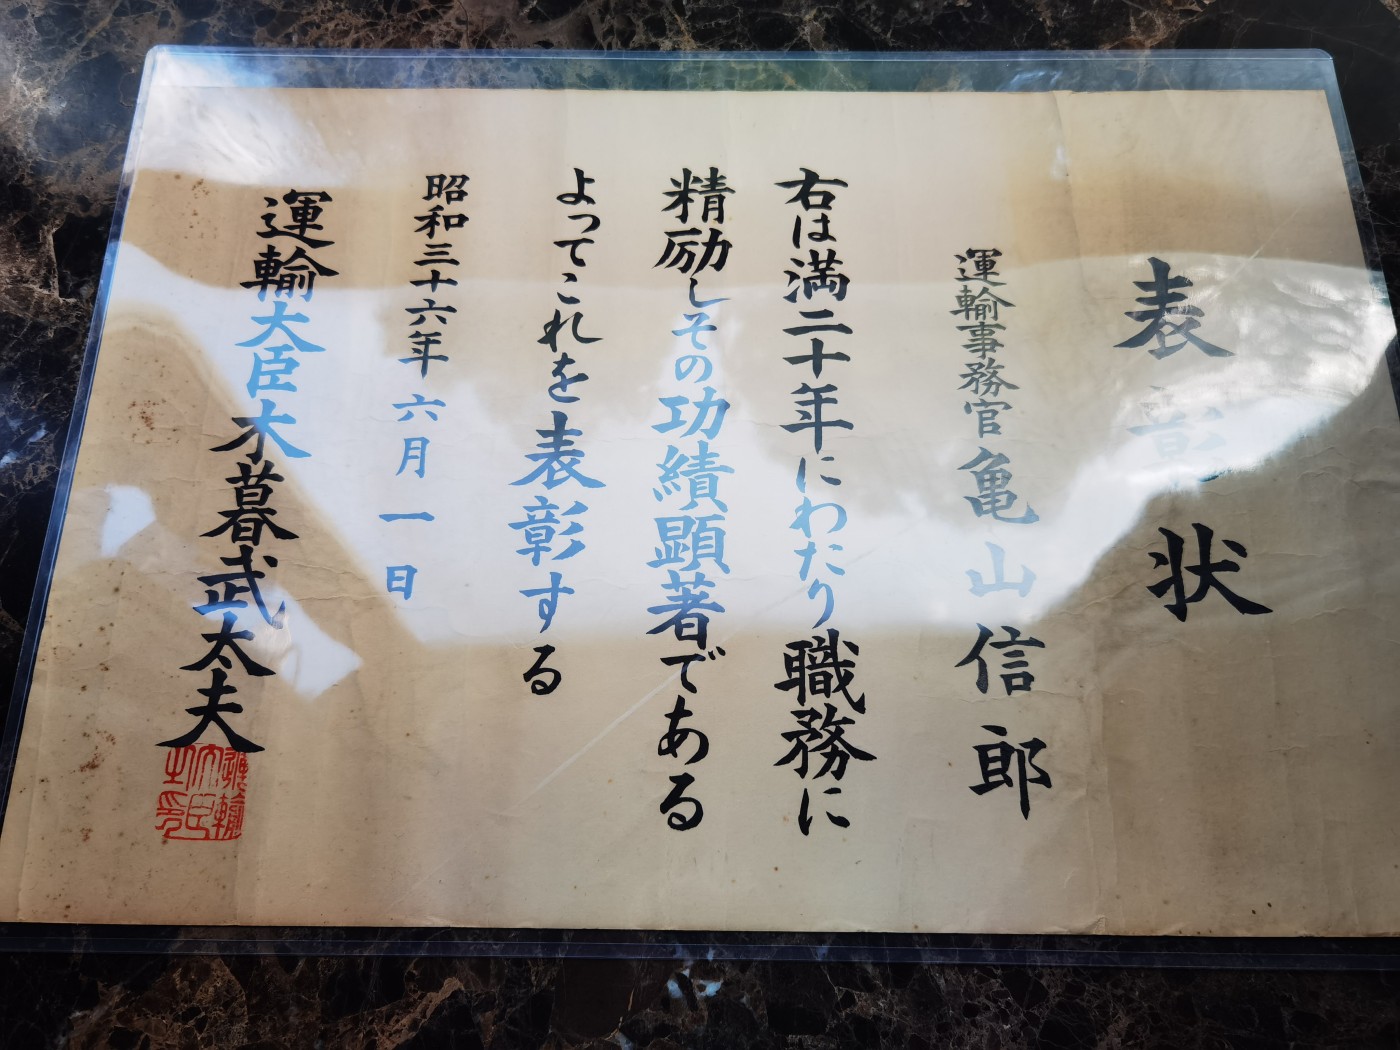 表彰状
運輸事務官 亀山信郎
右は満二十年にわたり職務に
精励しその功績顕著である
よってこれを表彰する
昭和三十六年六月一日
運輸大臣木暮武太夫
運輸大臣之印